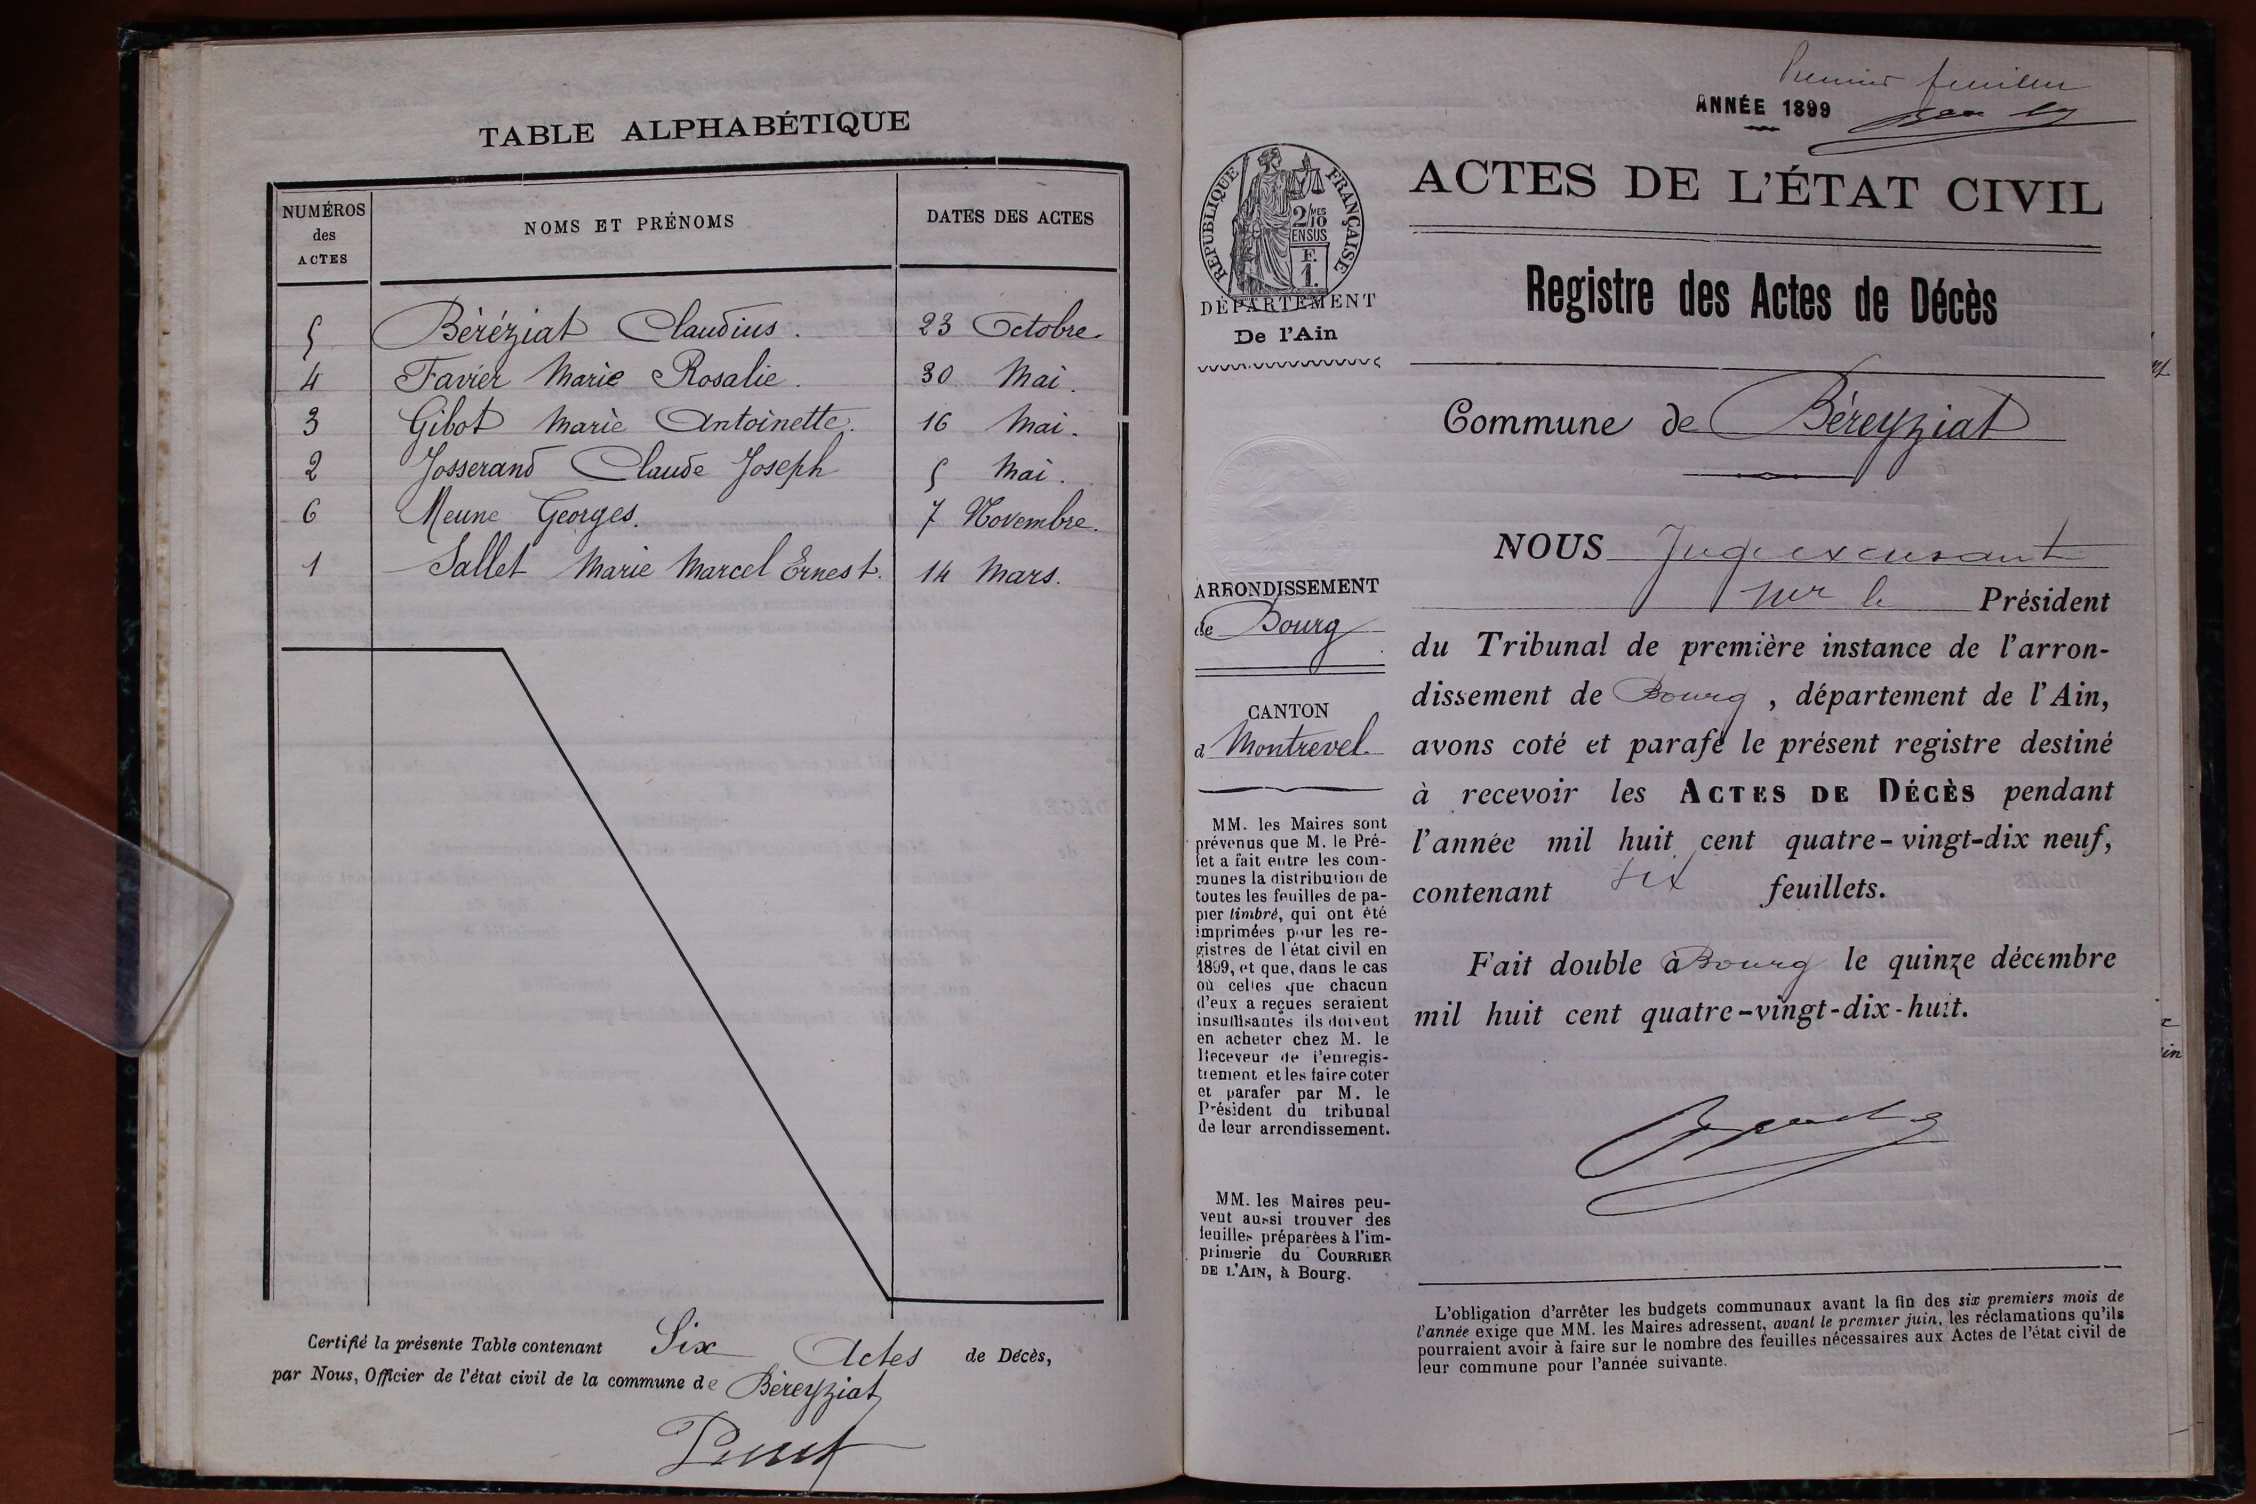 TABLE ALPHABÉTIQUE
NUMÉROS des ACTES
NOMS ET PRÉNOMS
DATES DES ACTES
5 Béréziat Claudius. 23 Octobre.
4 Favier Marie Rosalie. 30 Mai.
3 Gibot Marie Antoinette. 16 Mai.
2 Josserand Claude Joseph 5 Mai.
6 Meune Georges. 7 Novembre.
1 Sallet Marie Marcel Ernest. 14 Mars.
Certifié la présente Table contenant Six Actes de Décès,
par Nous, Officier de l'état civil de la commune de Béreyziat
Premier feuillet
ANNÉE 1899
RÉPUBLIQUE FRANÇAISE
2/10MES
EN SUS
F.
1.
DÉPARTEMENT
De l'Ain
ARRONDISSEMENT
de Bourg
CANTON
d Montrevel
MM. les Maires sont
prévenus que M. le Pré-
fet a fait entre les com-
munes la distribution de
toutes les feuilles de pa-
pier timbré, qui ont été
imprimées pour les re-
gistres de l'état civil en
1899, et que, dans le cas
où celles que chacun
d'eux a reçues seraient
insuffisantes ils doivent
en acheter chez M. le
Receveur de l'enregis-
trement et les faire coter
et parafer par M. le
Président du tribunal
de leur arrondissement.
MM. les Maires peu-
vent aussi trouver des
feuilles préparées à l'im-
primerie du COURRIER
DE L'AIN, à Bourg.
ACTES DE L'ÉTAT CIVIL
Registre des Actes de Décès
Commune de Béreyziat
NOUS Juge excusant
pour le Président
du Tribunal de première instance de l'arron-
dissement de Bourg, département de l'Ain,
avons coté et parafé le présent registre destiné
à recevoir les ACTES DE DÉCÈS pendant
l'année mil huit cent quatre-vingt-dix neuf,
contenant six feuillets.
Fait double à Bourg le quinze décembre
mil huit cent quatre-vingt-dix-huit.
L'obligation d'arrêter les budgets communaux avant la fin des six premiers mois de
l'année exige que MM. les Maires adressent, avant le premier juin, les réclamations qu'ils
pourraient avoir à faire sur le nombre des feuilles nécessaires aux Actes de l'état civil de
leur commune pour l'année suivante.